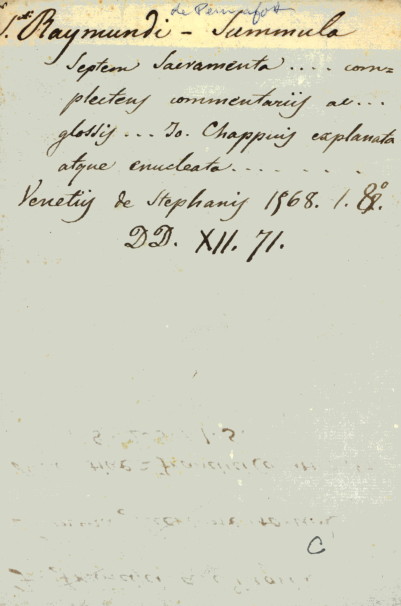 de Pennafort
S.ti Raymundi - Summula
Septem Sacramenta .... com=
plectens commentariis ac ...
glossis ... Jo. Chappuis explanata
atque enucleata .......
Venetiis de Stephanis 1568. 1. 8.º
DD. XII. 71.
C